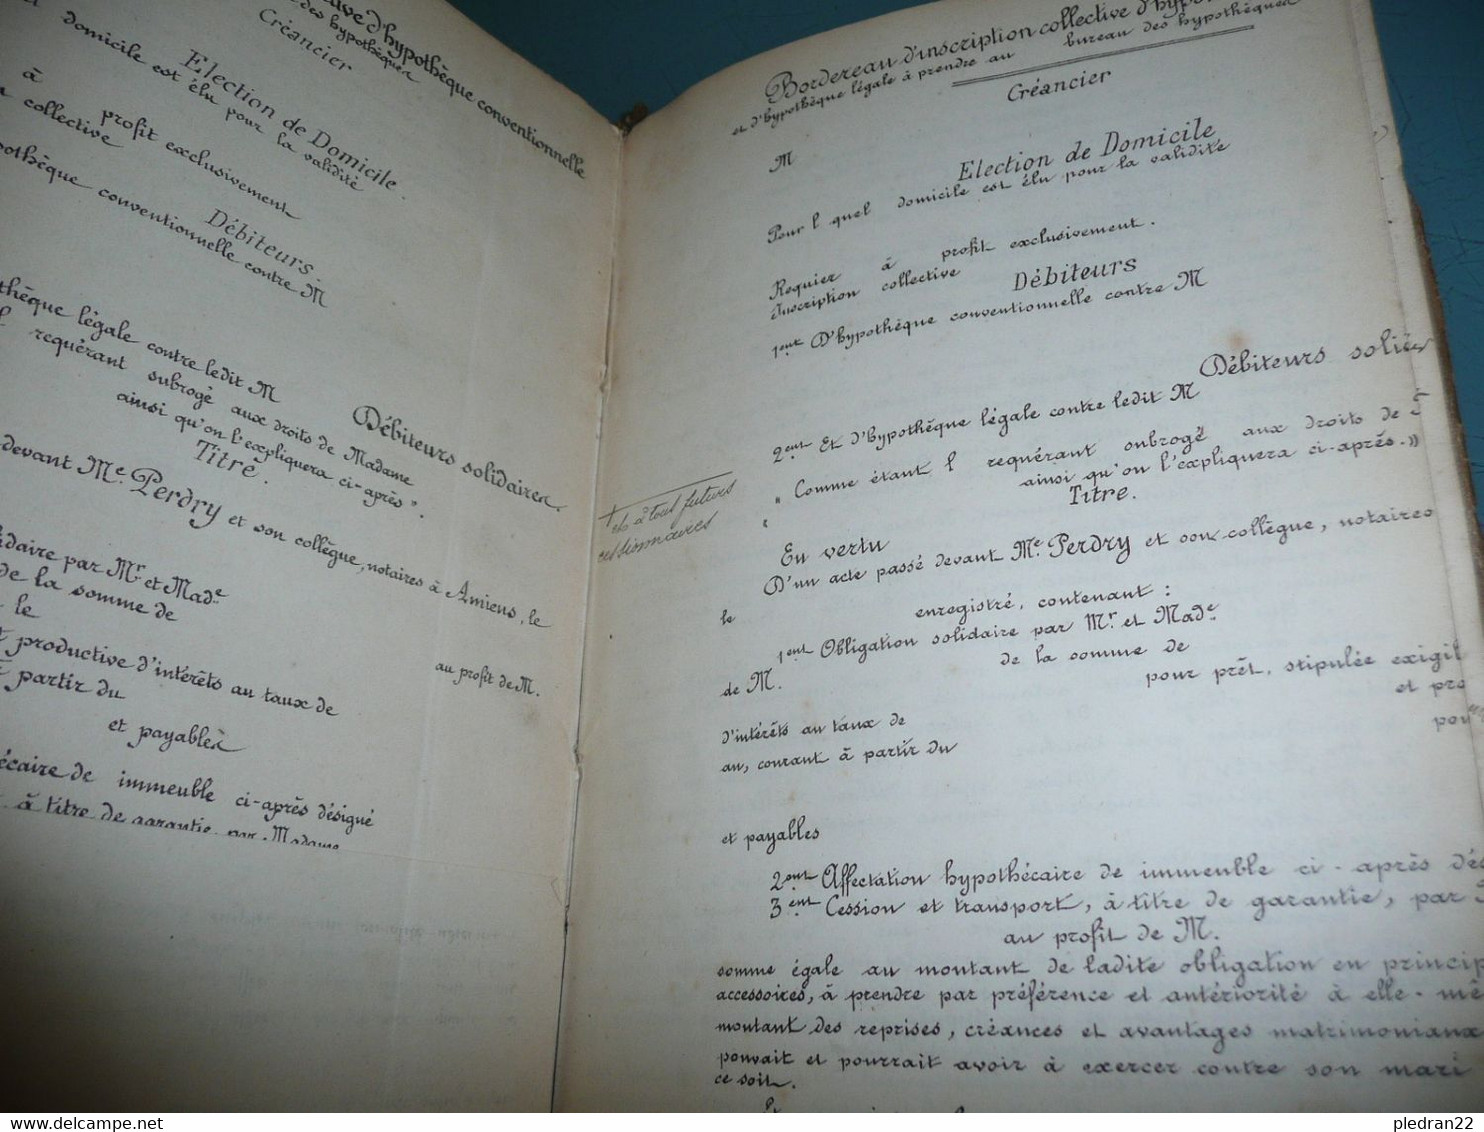 d'hypothèque conventionnelle
des hypothèques
Créancier
Election de Domicile
domicile est élu pour la validité
à profit exclusivement
collective
Débiteurs.
conventionnelle contre M
légale contre ledit M
Débiteurs solidaires
requérant subrogé aux droits de Madame
ainsi qu'on l'expliquera ci-après".
Titre.
devant Me Perdry et son collègue, notaires à Amiens, le
par Mr et Made
de la somme de
le
au profit de M.
productive d'intérêts au taux de
à partir du
et payables
de immeuble ci-après désigné
à titre de garantie par Madame
Bordereau d'inscription collective
et d'hypothèque légale à prendre au bureau des hypothèques
Créancier
M
Election de Domicile
Pour l quel domicile est élu pour la validité
Requier à profit exclusivement.
Inscription collective
Débiteurs
1ent D'hypothèque conventionnelle contre M
Débiteurs
2ent Et d'hypothèque légale contre ledit M
" Comme étant l requérant subrogé aux droits de
" ainsi qu'on l'expliquera ci-après."
Titre.
+ et à tous futurs
cessionnaires
En vertu
D'un acte passé devant Me Perdry et son collègue, notaires
le
enregistré, contenant :
1ent Obligation solidaire par Mr et Made
de la somme de
de M.
pour prêt, stipulée
et
d'intérêts au taux de
an, courant à partir du
et payables
2ent Affectation hypothécaire de immeuble ci-après
3ent Cession et transport, à titre de garantie, par
au profit de M.
somme égale au montant de ladite obligation en
accessoires, à prendre par préférence et antériorité à elle-
montant des reprises, créances et avantages matrimoniaux
pouvait et pourrait avoir à exercer contre son mari
ce soit.
delcampe.net
pledran22